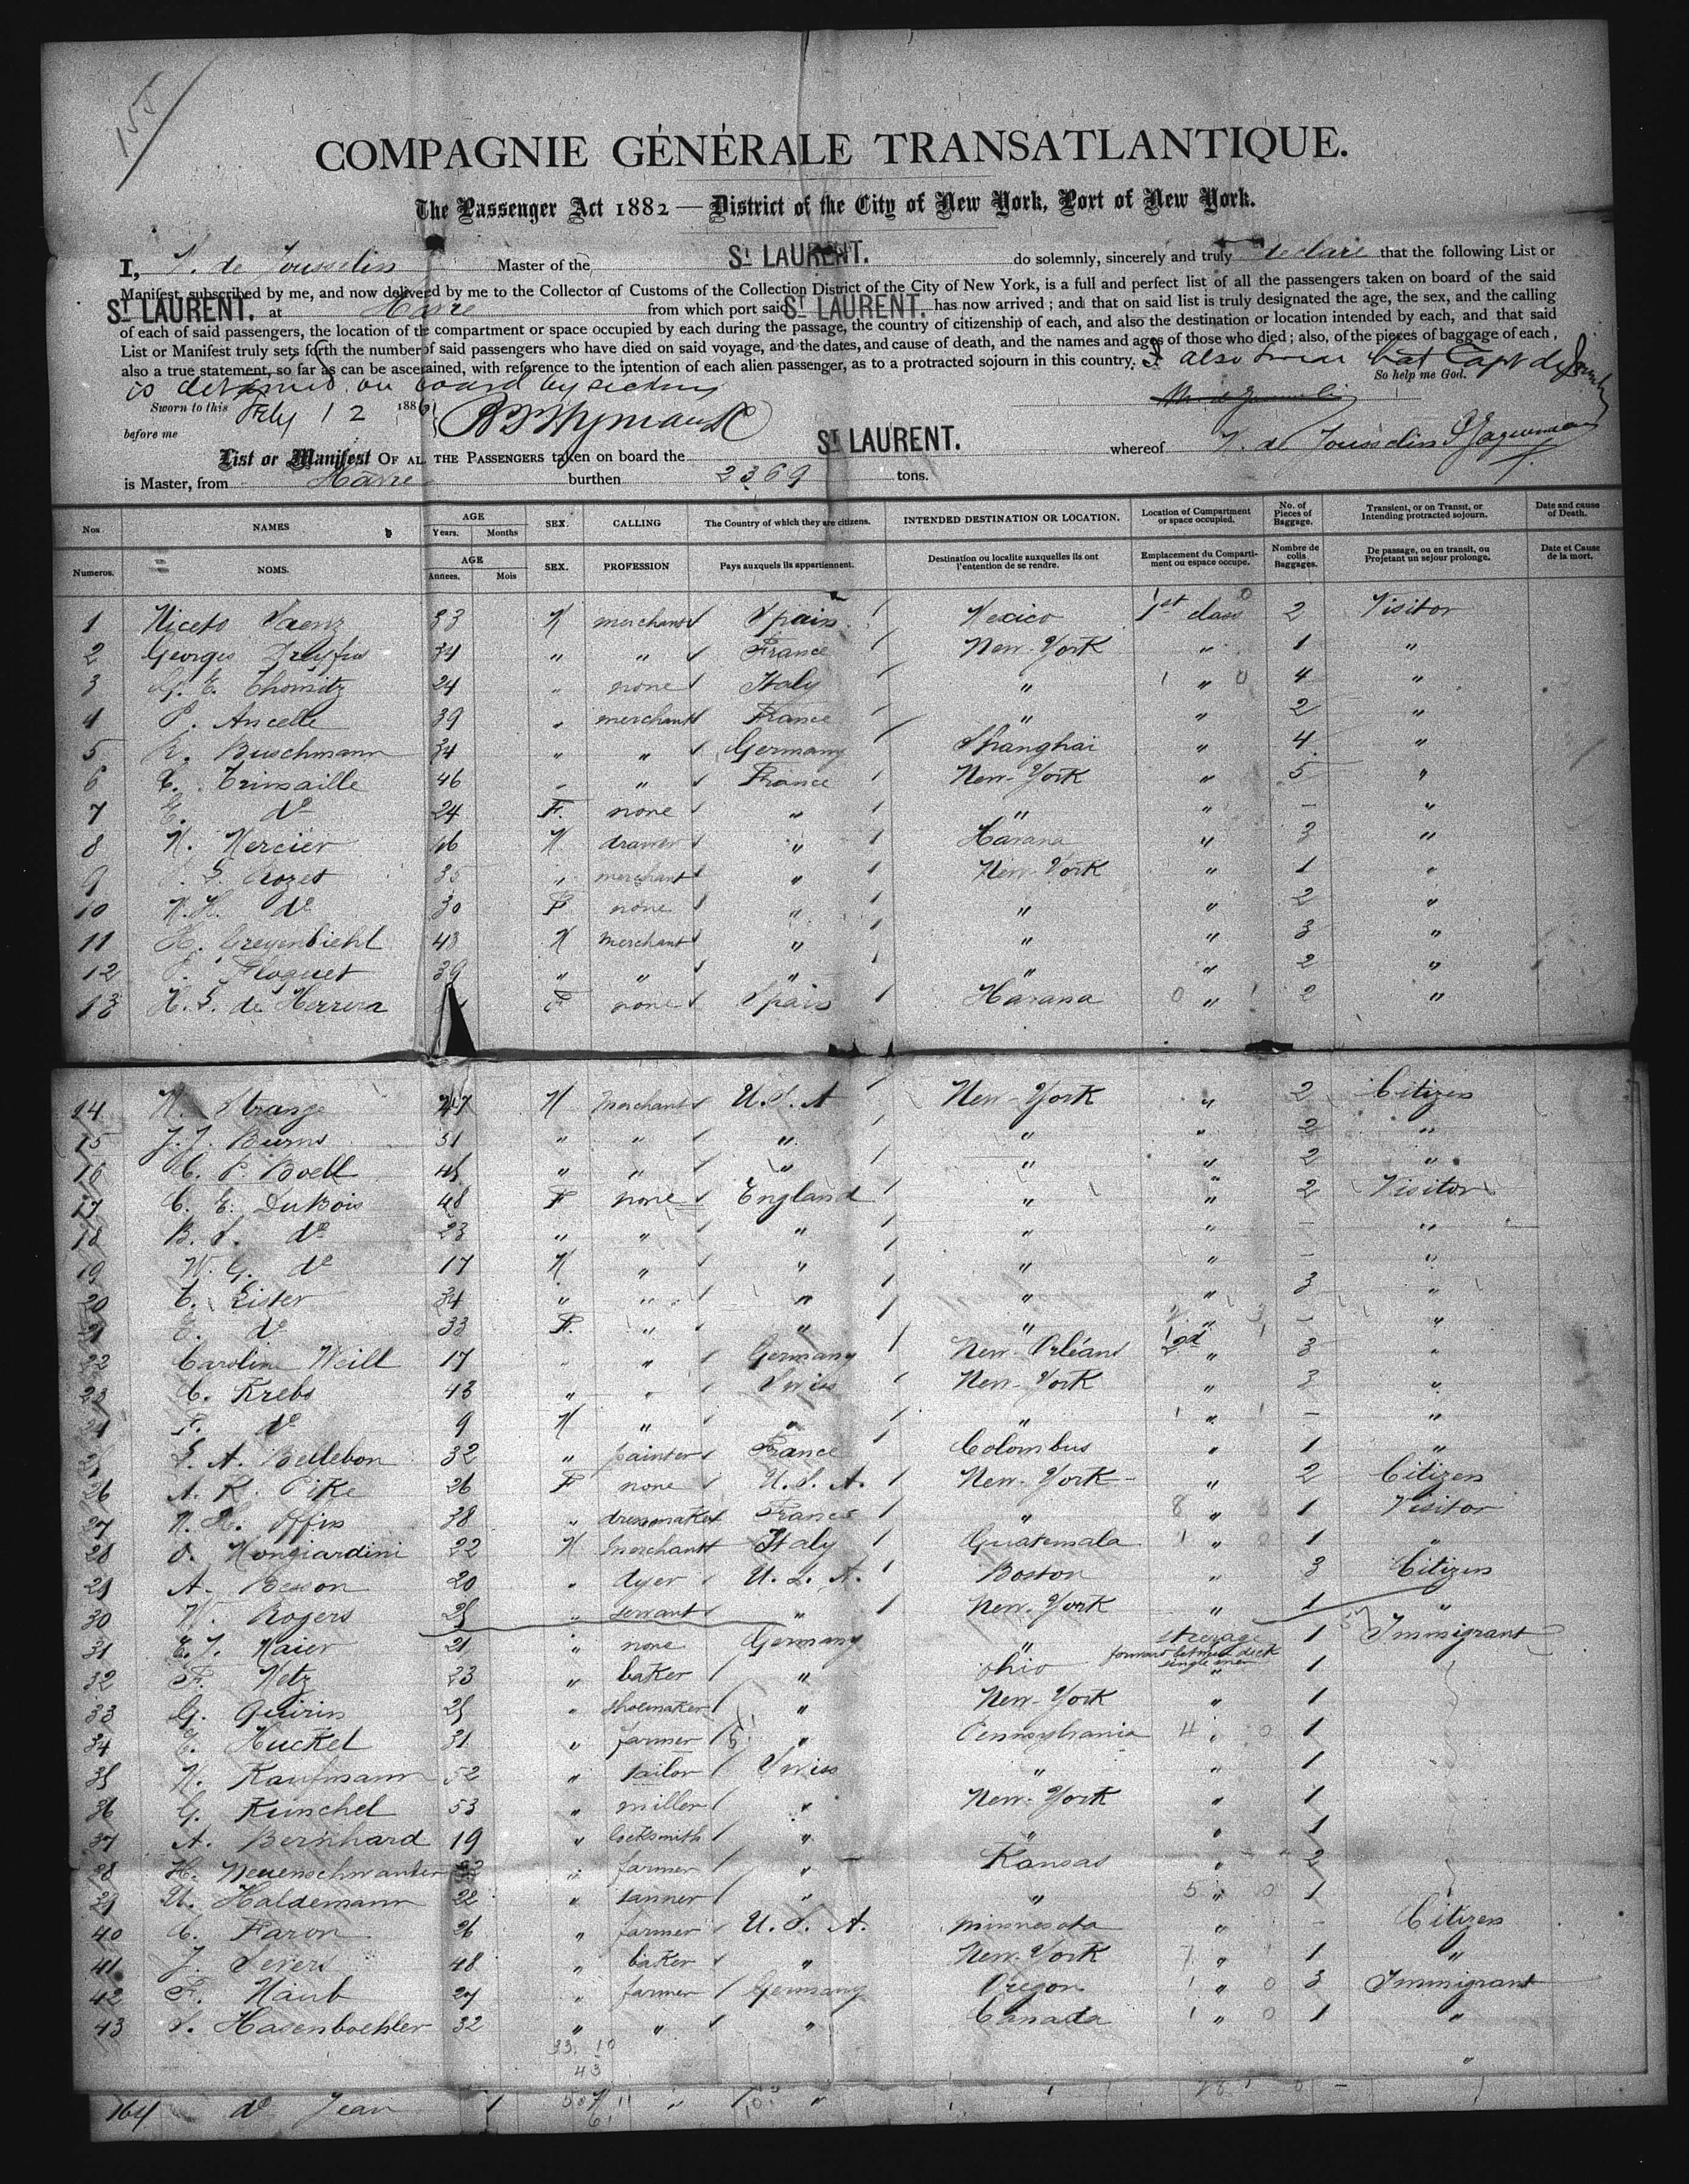 155
COMPAGNIE GÉNÉRALE TRANSATLANTIQUE.
The Passenger Act 1882 — District of the City of New York, Port of New York.
I, de Jousselin Master of the ST LAURENT. do solemnly, sincerely and truly declare that the following List or
Manifest, subscribed by me, and now delivered by me to the Collector of Customs of the Collection District of the City of New York, is a full and perfect list of all the passengers taken on board of the said
ST LAURENT. at Havre from which port said ST LAURENT. has now arrived ; and that on said list is truly designated the age, the sex, and the calling
of each of said passengers, the location of the compartment or space occupied by each during the passage, the country of citizenship of each, and also the destination or location intended by each, and that said
List or Manifest truly sets forth the number of said passengers who have died on said voyage, and the dates, and cause of death, and the names and ages of those who died ; also, of the pieces of baggage of each ,
also a true statement, so far as can be ascertained, with reference to the intention of each alien passenger, as to a protracted sojourn in this country. I also swear that Capt de Jousselin
So help me God.
is detained on board by sickness
Sworn to this Feby 12 1886
before me
List or Manifest OF ALL THE PASSENGERS taken on board the ST LAURENT. whereof de Jousselin
is Master, from Havre burthen 2369 tons.
Nos NAMES AGE Years. Months SEX. CALLING The Country of which they are citizens. INTENDED DESTINATION OR LOCATION. Location of Compartment or space occupied. No. of Pieces of Baggage. Transient, or on Transit, or Intending protracted sojourn. Date and cause of Death.
Numeros. NOMS. AGE Annees. Mois SEX. PROFESSION Pays auxquels ils appartiennent. Destination ou localite auxquelles ils ont l'entention de se rendre. Emplacement du Compartiment ou espace occupe. Nombre de colis Baggages. De passage, ou en transit, ou Projetant un sejour prolonge. Date et Cause de la mort.
1 Niceto Saenz 33 M merchant Spain Mexico 1st class 2 Visitor
2 Georges Dreyfus 34 " " France New-York " 1 "
3 G. E. 24 " none Italy " " 4 "
4 P. Ancelle 39 " merchant France " " 2 "
5 R. Buschmann 34 " " Germany Shanghai " 4 "
6 Trimaille 46 " " France New-York " 5 "
7 E. do 24 F. none " " " — "
8 M. Mercier 46 M " Havana " 3 "
9 Crozet 35 " merchant " New-York " 1 "
10 M. do 30 F none " " " 2 "
11 H. Greyenbiehl 43 M merchant " " " 3 "
12 Floquet 39 " " " " " 2 "
13 de Herrera F none Spain Havana " 2 "
14 Strange 47 M merchant U.S.A New-York " 2 Citizen
15 J. J. Burns 51 " " " " " 2 "
16 C. P. Boell 45 " " " " " 2 "
17 C. E. DuBois 48 F none England " " 2 Visitor
18 B. S. do 23 " " " " " — "
19 W. G. do 17 M " " " " — "
20 Lister 34 " " " " " 3 "
21 E. do 33 F. " " " " — "
22 Caroline Weill 17 " " Germany New-Orléans 2d " 3 "
23 C. Krebs 43 " " Swiss New-York " 3 "
24 F. do 9 M " " " " — "
25 L. A. Bellebon 32 " painter France Colombus " 1 "
26 A. R. Pike 26 F none U.S.A. New-York " 2 Citizen
27 38 " dressmaker France " " 1 Visitor
28 Mongiardini 22 M merchant Italy Guatemala " 1 "
29 A. Besson 20 " dyer U.S.A. Boston " 3 Citizen
30 W. Rogers 25 " servant " New-York " 1 "
31 E. J. Maier 21 " none Germany " steerage forward between deck single men 1 Immigrant
32 F. Metz 23 " baker " Ohio " 1
33 G. Quirin 25 " shoemaker " New-York " 1
34 Huckel 31 " farmer " Pennsylvania " 1
35 M. Kaufmann 52 " tailor Swiss " " 1
36 G. Kunschel 53 " miller " New-York " 1
37 A. Bernhard 19 " locksmith " " " 1
38 H. Neuenschwander " farmer " Kansas " 2
39 U. Haldemann 22 " tanner " " " 1
40 C. Faron 26 " farmer U.S.A. Minnesota " — Citizen
41 J. Severs 48 " baker " New-York " 1 "
42 F. Naub 27 " farmer Germany Oregon " 3 Immigrant
43 S. Hasenboehler 32 " " " Canada " 1 "
33. 10
43
164 do Jean